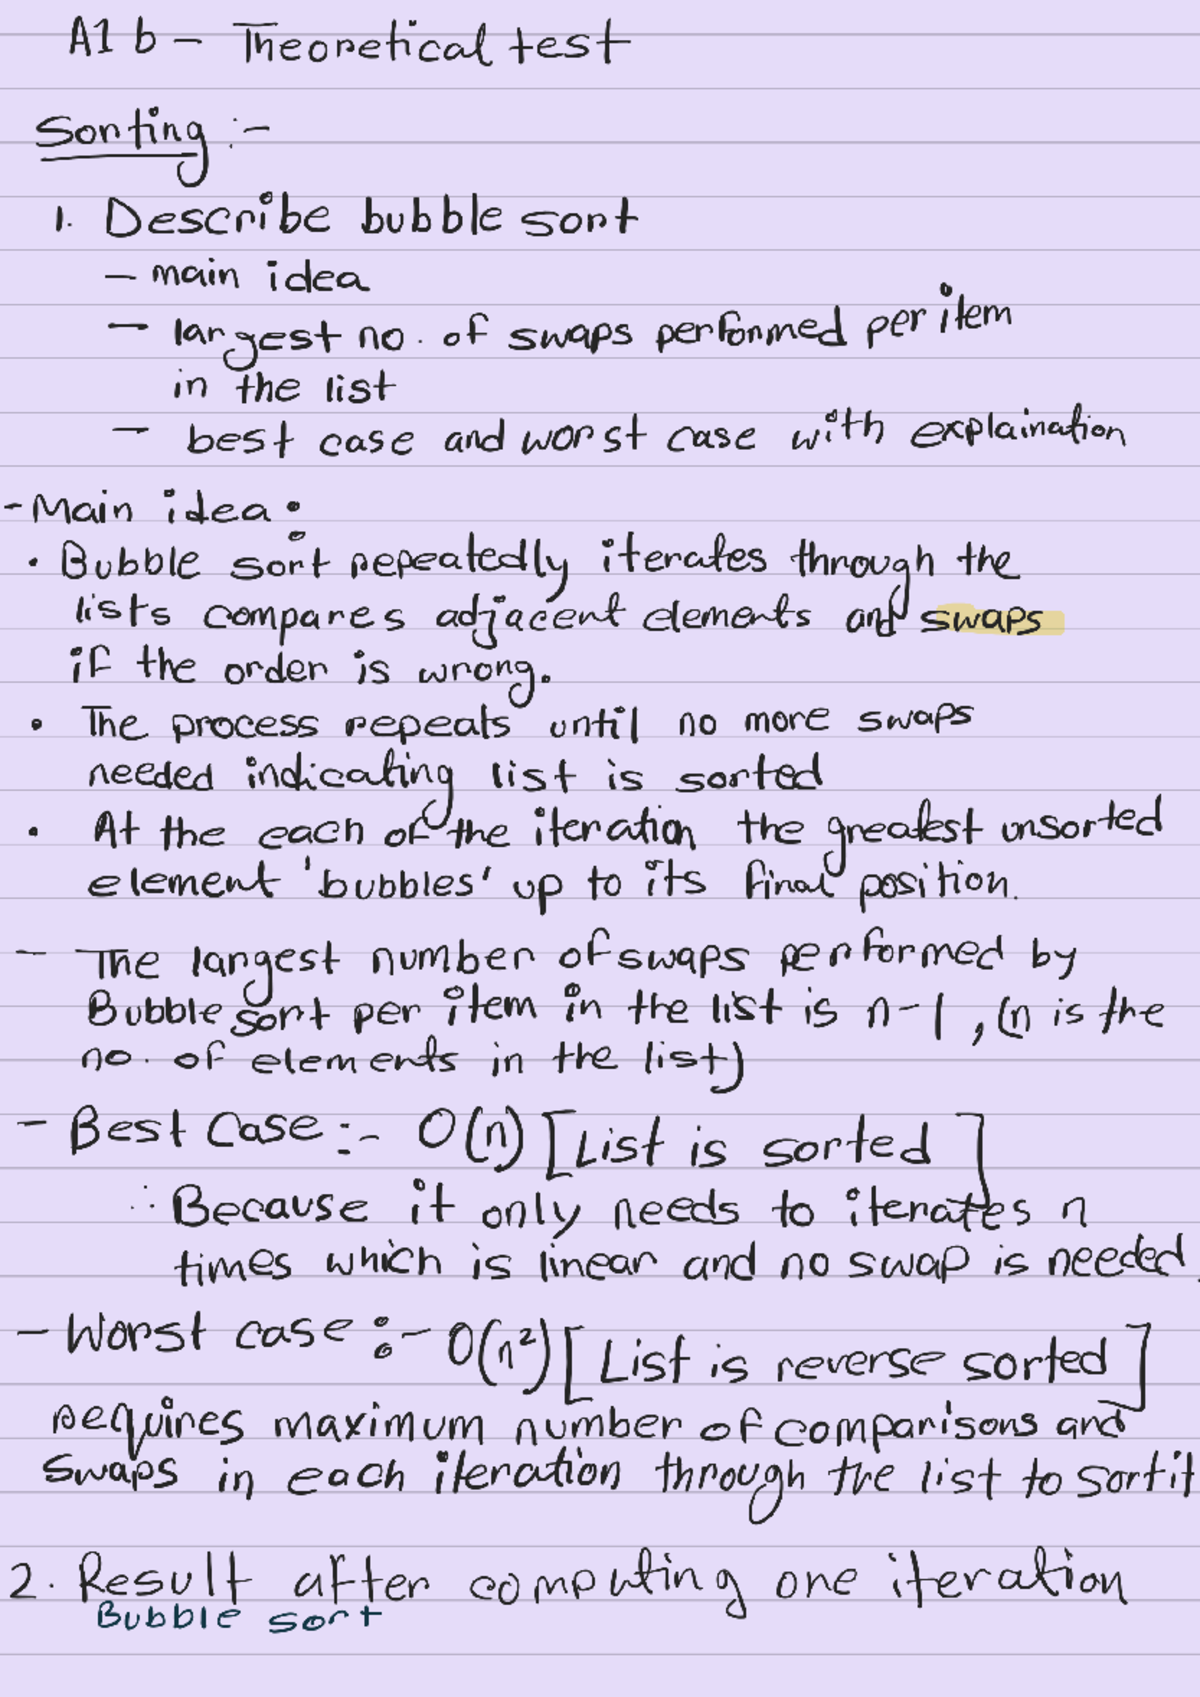 A1 b - Theoretical test
Sorting :-
1. Describe bubble sort
- main idea
- largest no. of swaps performed per item
in the list
- best case and worst case with explaination
- Main idea :
• Bubble sort repeatedly iterates through the
lists compares adjacent elements and swaps
if the order is wrong.
• The process repeats until no more swaps
needed indicating list is sorted
• At the each of the iteration the greatest unsorted
element 'bubbles' up to its final position.
- The largest number of swaps performed by
Bubble sort per item in the list is n-1, (n is the
no. of elements in the list)
- Best Case :- O(n) [List is sorted]
∴ Because it only needs to iterates n
times which is linear and no swap is needed.
- Worst case :- O(n²) [List is reverse sorted]
requires maximum number of comparisons and
swaps in each iteration through the list to sort it
2. Result after computing one iteration
Bubble sort